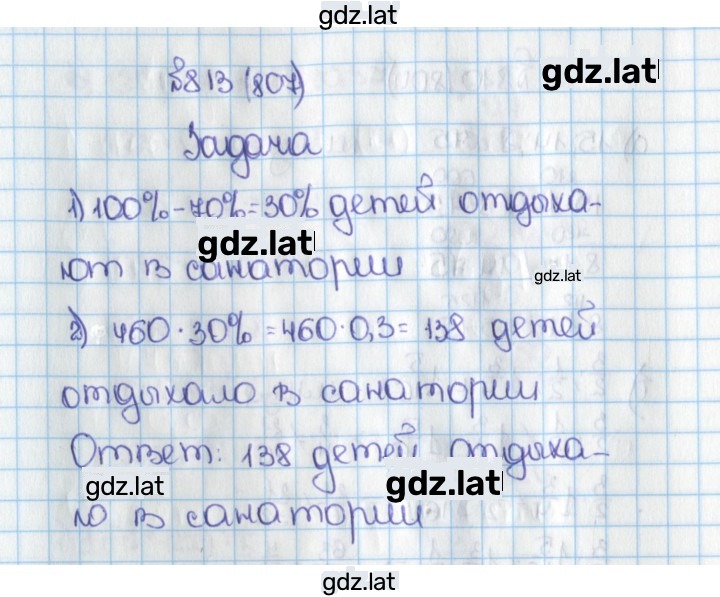 gdz.lat
№813 (807)
gdz.lat
Задача
1) 100% - 70% = 30% детей отдыха-
gdz.lat
ют в санатории
gdz.lat
2) 460 · 30% = 460 · 0,3 = 138 детей
отдыхало в санатории
Ответ: 138 детей отдыха-
gdz.lat
gdz.lat
ло в санатории
gdz.lat